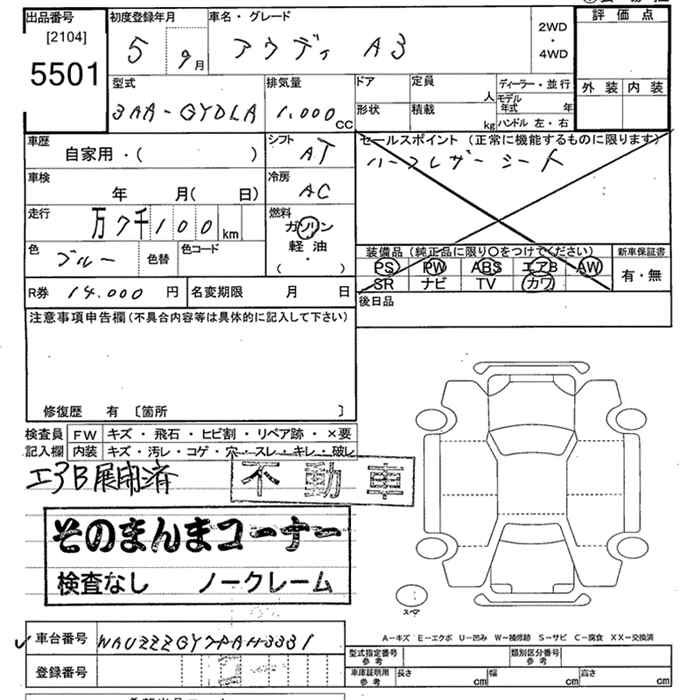 出品番号
[2104]
5501
初度登録年月
5 9月
車名・グレード
アウディ A3
2WD
・
4WD
評価点
外装 内装
型式
3AA-GYDLA
排気量
1.000cc
ドア
定員
人
形状
積載
kg
ディーラー・並行
モデル年式
年
ハンドル 左・右
車歴
自家用・( )
シフト
AT
セールスポイント (正常に機能するものに限ります)
ハーフレザーシート
車検
年 月( 日)
冷房
AC
走行
万7千100km
燃料
ガソリン
軽油
( ・ )
色
ブルー
色替
色コード
装備品 (純正品に限り〇をつけてください)
PS PW ABS エアB AW
SR ナビ TV カワ
新車保証書
有・無
R券 14.000円
名変期限 月 日
後日品
注意事項申告欄(不具合内容等は具体的に記入して下さい)
修復歴 有 〔箇所 〕
検査員
記入欄
FW キズ・飛石・ヒビ割・リペア跡・×要
内装 キズ・汚レ・コゲ・穴・スレ・キレ・破レ
エアB展開済
不動車
そのまんまコーナー
検査なし ノークレーム
スペア
車台番号
登録番号
A-キズ E-エクボ U-凹み W-補修跡 S-サビ C-腐食 XX-交換済
型式指定番号
参考
類別区分番号
参考
車庫証明用
参考
長さ cm
幅 cm
高さ cm